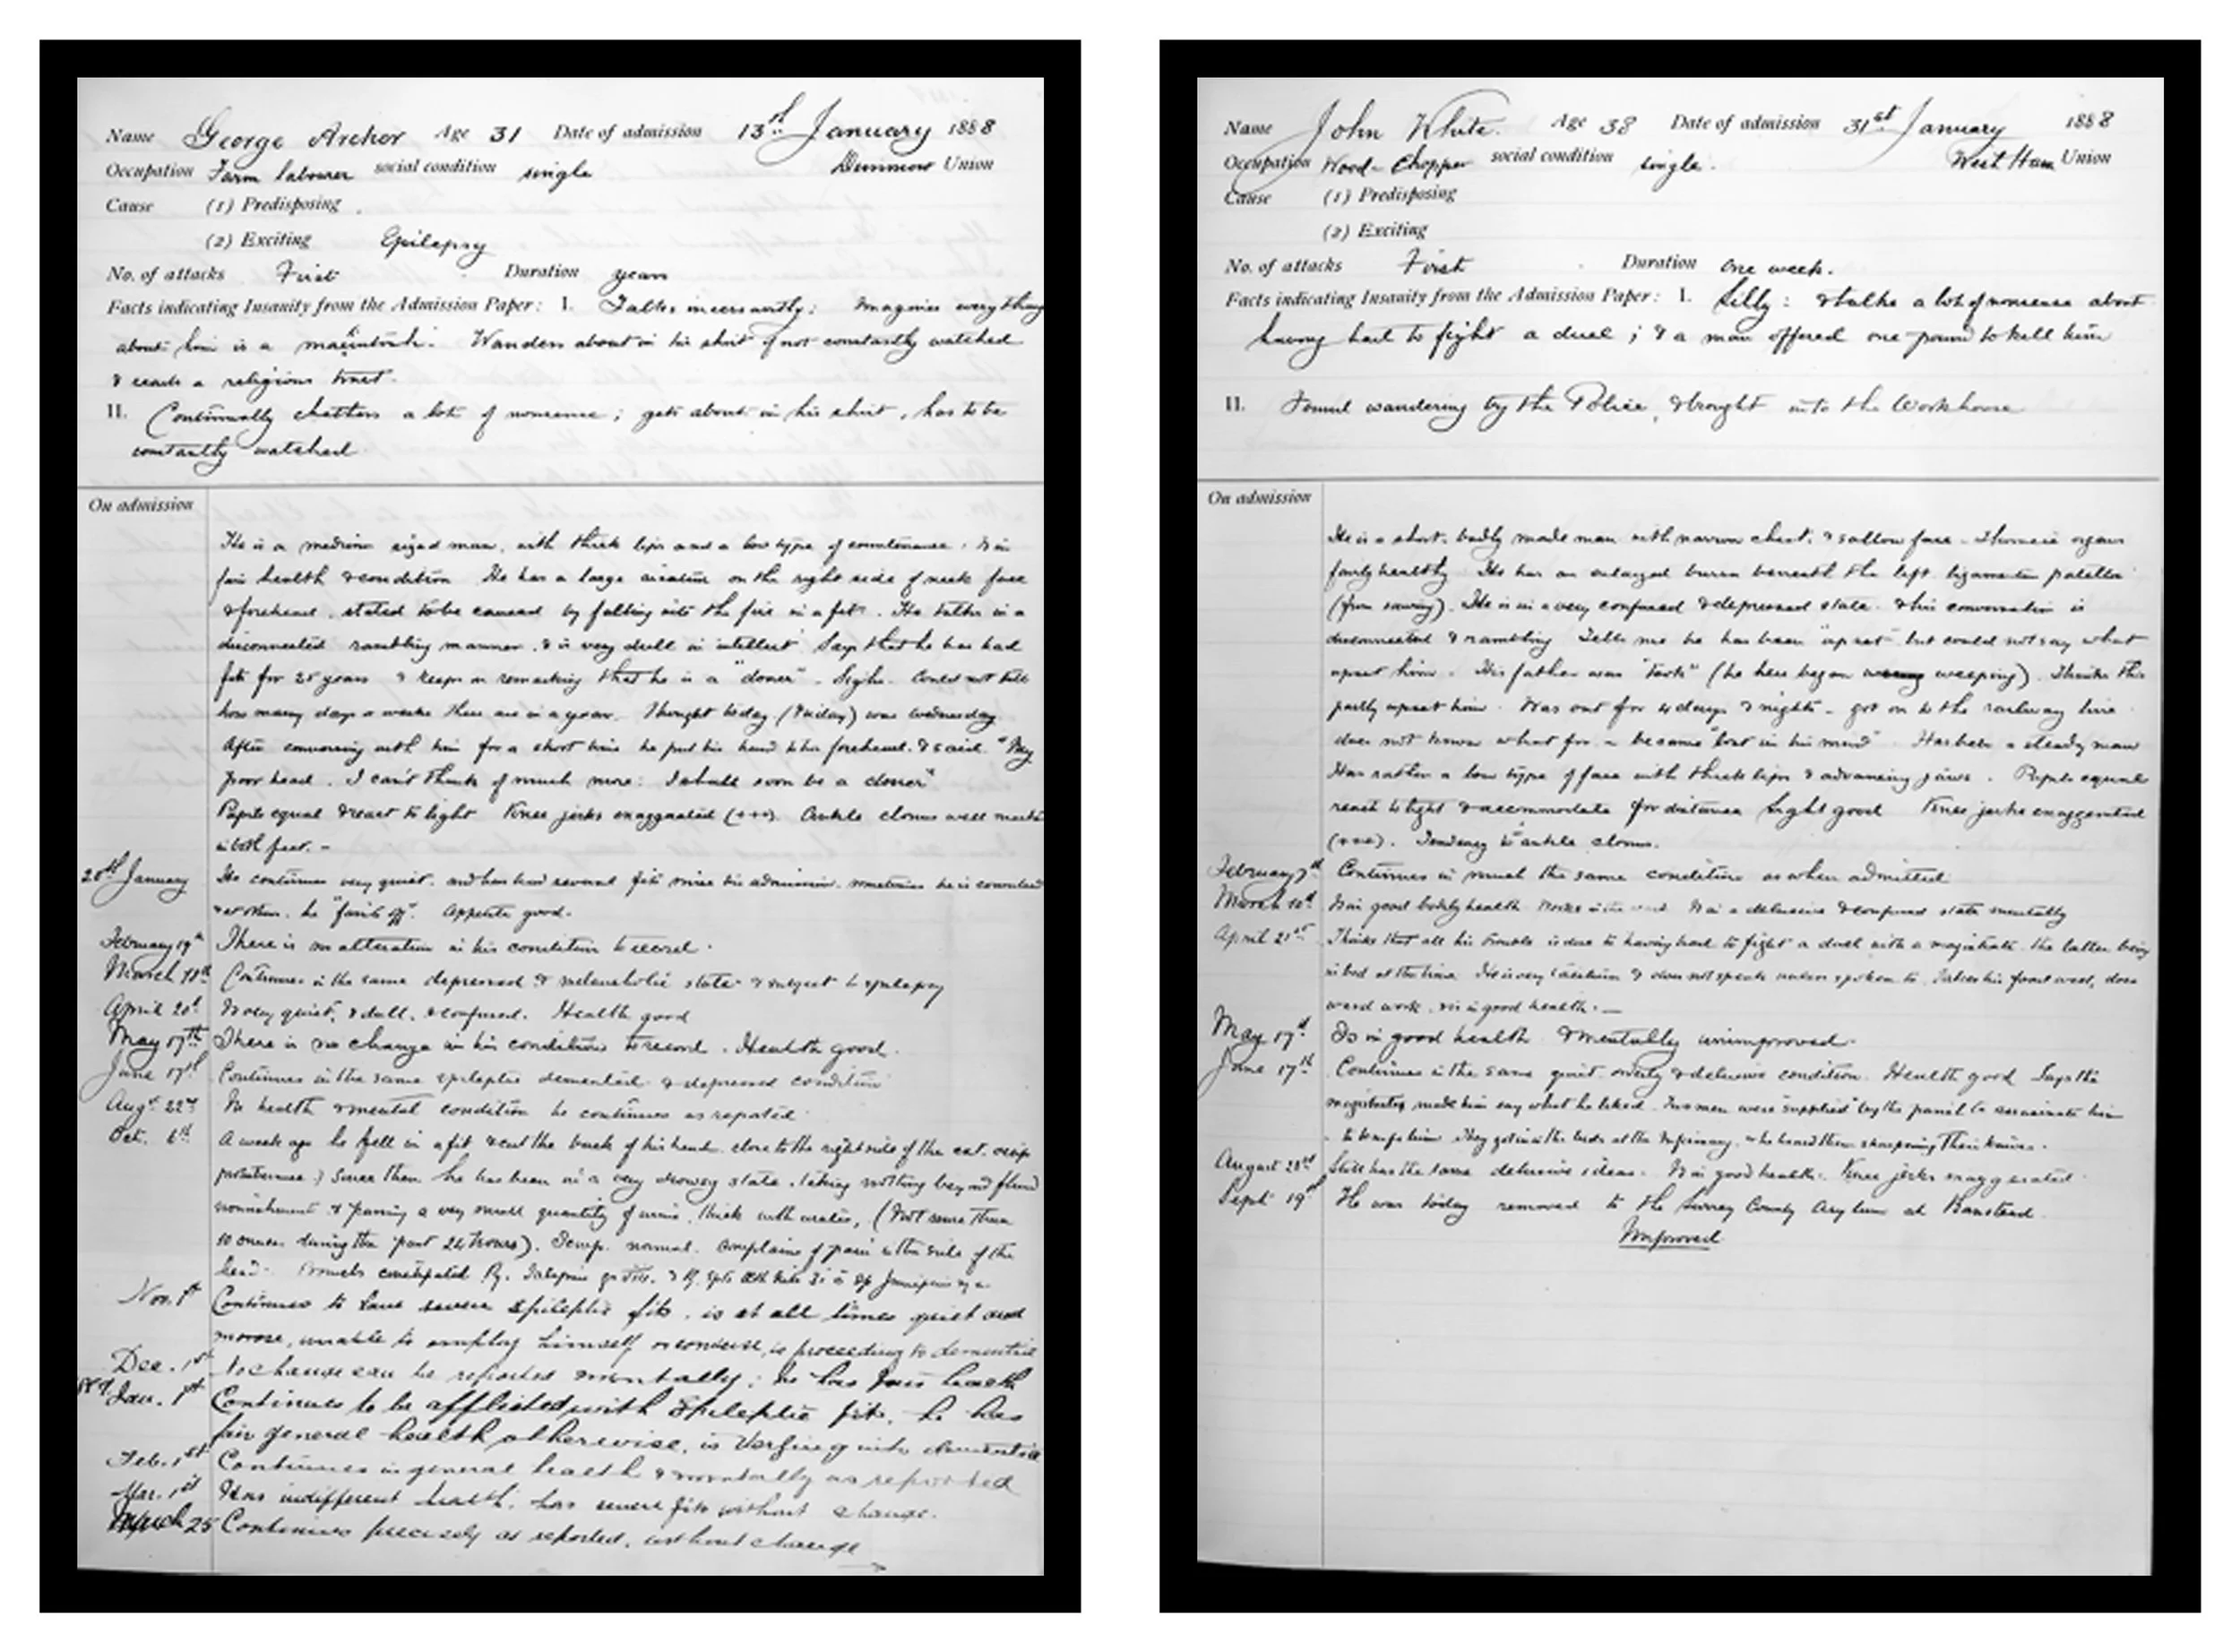 Name George Archer Age 31 Date of admission 13th January 1888
Occupation Farm labourer social condition single Dunmow Union
Cause (1) Predisposing
(2) Exciting Epilepsy
No. of attacks First Duration years
Facts indicating Insanity from the Admission Paper: I. Talks incessantly: Imagines everything
about him is a macintosh. Wanders about in his shirt if not constantly watched
& reads a religious tract.
II. Continually chatters a lot of nonsense; gets about in his shirt, has to be
constantly watched
On admission
He is a medium sized man, with thick lips and a low type of countenance. Is in
fair health & condition He has a large cicatrix on the right side of neck face
& forehead, stated to be caused by falling into the fire in a fit. He talks in a
disconnected rambling manner, & is very dull in intellect. Says that he has had
fits for 25 years & keeps on remarking that he is a "doner". Sighs. Could not tell
how many days or weeks there are in a year. Thought today (Friday) was Wednesday
After conversing with him for a short time he put his hand to his forehead & said "My
poor head. I can't think of much more: I shall soon be a doner"
Pupils equal & react to light Knee jerks exaggerated (+++). Ankle clonus well marked
in both feet. -
28th January He continues very quiet, and has had several fits since his admission. sometimes he is convulsed
& at others, he "faints off". Appetite good.
February 19th There is no alteration in his condition to record.
March Continues in the same depressed & melancholic state & subject to epilepsy
April 20th Is very quiet, & dull, & confused. Health good
May 17th There is no change in his condition to record. Health good.
June 17th Continues in the same epileptic demented & depressed condition
Augt. 22nd In health & mental condition he continues as reported
Oct. 6th A week ago he fell in a fit & cut the back of his head close to the right side of the ext. occip
protuberance.) Since then he has been in a very drowsy state, taking nothing beyond fluid
nourishment & passing a very small quantity of urine, thick with urates, (Not more than
10 ounces during the past 24 hours). Temp. normal. Complains of pain in the side of the
head. Bowels constipated
Nov. 1st Continues to have severe Epileptic fits, is at all times quiet and
morose, unable to employ himself or converse, is proceeding to dementia
Dec. 1st No change can be reported mentally; he has fair health
Jan. 1st Continues to be afflicted with Epileptic fits, he has
fair general health otherwise, is verging into dementia
Feb. 1st Continues in general health & mentally as reported
Mar. 1st Has indifferent health, has severe fits without change.
March 25 Continues precisely as reported, without change
Name John White. Age 38 Date of admission 31st January 1888
Occupation Wood-Chopper social condition single. West Ham Union
Cause (1) Predisposing
(2) Exciting
No. of attacks First Duration One week.
Facts indicating Insanity from the Admission Paper: I. Silly: & talks a lot of nonsense about
having had to fight a duel; & a man offered one pound to kill him
II. Found wandering by the Police, & brought into the Workhouse
On admission
He is a short, badly made man with narrow chest, & sallow face. Thoracic organs
fairly healthy He has an enlarged bursa beneath the left ligamentum patellae
(from sawing). He is in a very confused & depressed state. & his conversation is
disconnected & rambling Tells me he has been "upset" but could not say what
upset him. His father was "took" (he here began weeping). Thinks this
partly upset him. Was out for 4 days & nights - got on to the railway line
does not know what for, - became "lost in his mind". Has been a steady man
Has rather a low type of face with thick lips & advancing jaws. Pupils equal
react to light & accommodate for distance Sight good Knee jerks exaggerated
(+++). Tendency to ankle clonus.
February 7th Continues in much the same condition as when admitted
March 10th Is in good bodily health. Works in the ward. Is in a delusive & confused state mentally
April 21st Thinks that all his trouble is due to having had to fight a duel with a magistrate, the latter being
in bed at the time. He is very taciturn & does not speak unless spoken to. Takes his food well, does
ward work, & is in good health. -
May 17th Is in good health & mentally unimproved.
June 17th Continues in the same quiet orderly & delusive condition. Health good Says the
magistrates made him say what he liked. Two men were "supplied" by the panel to assassinate him
They got into the beds at the Infirmary, & he heard them sharpening their knives.
August 28th Still has the same delusive ideas. Is in good health. Knee jerks exaggerated.
Sept. 19th He was today removed to the Surrey County Asylum at Banstead.
Improved